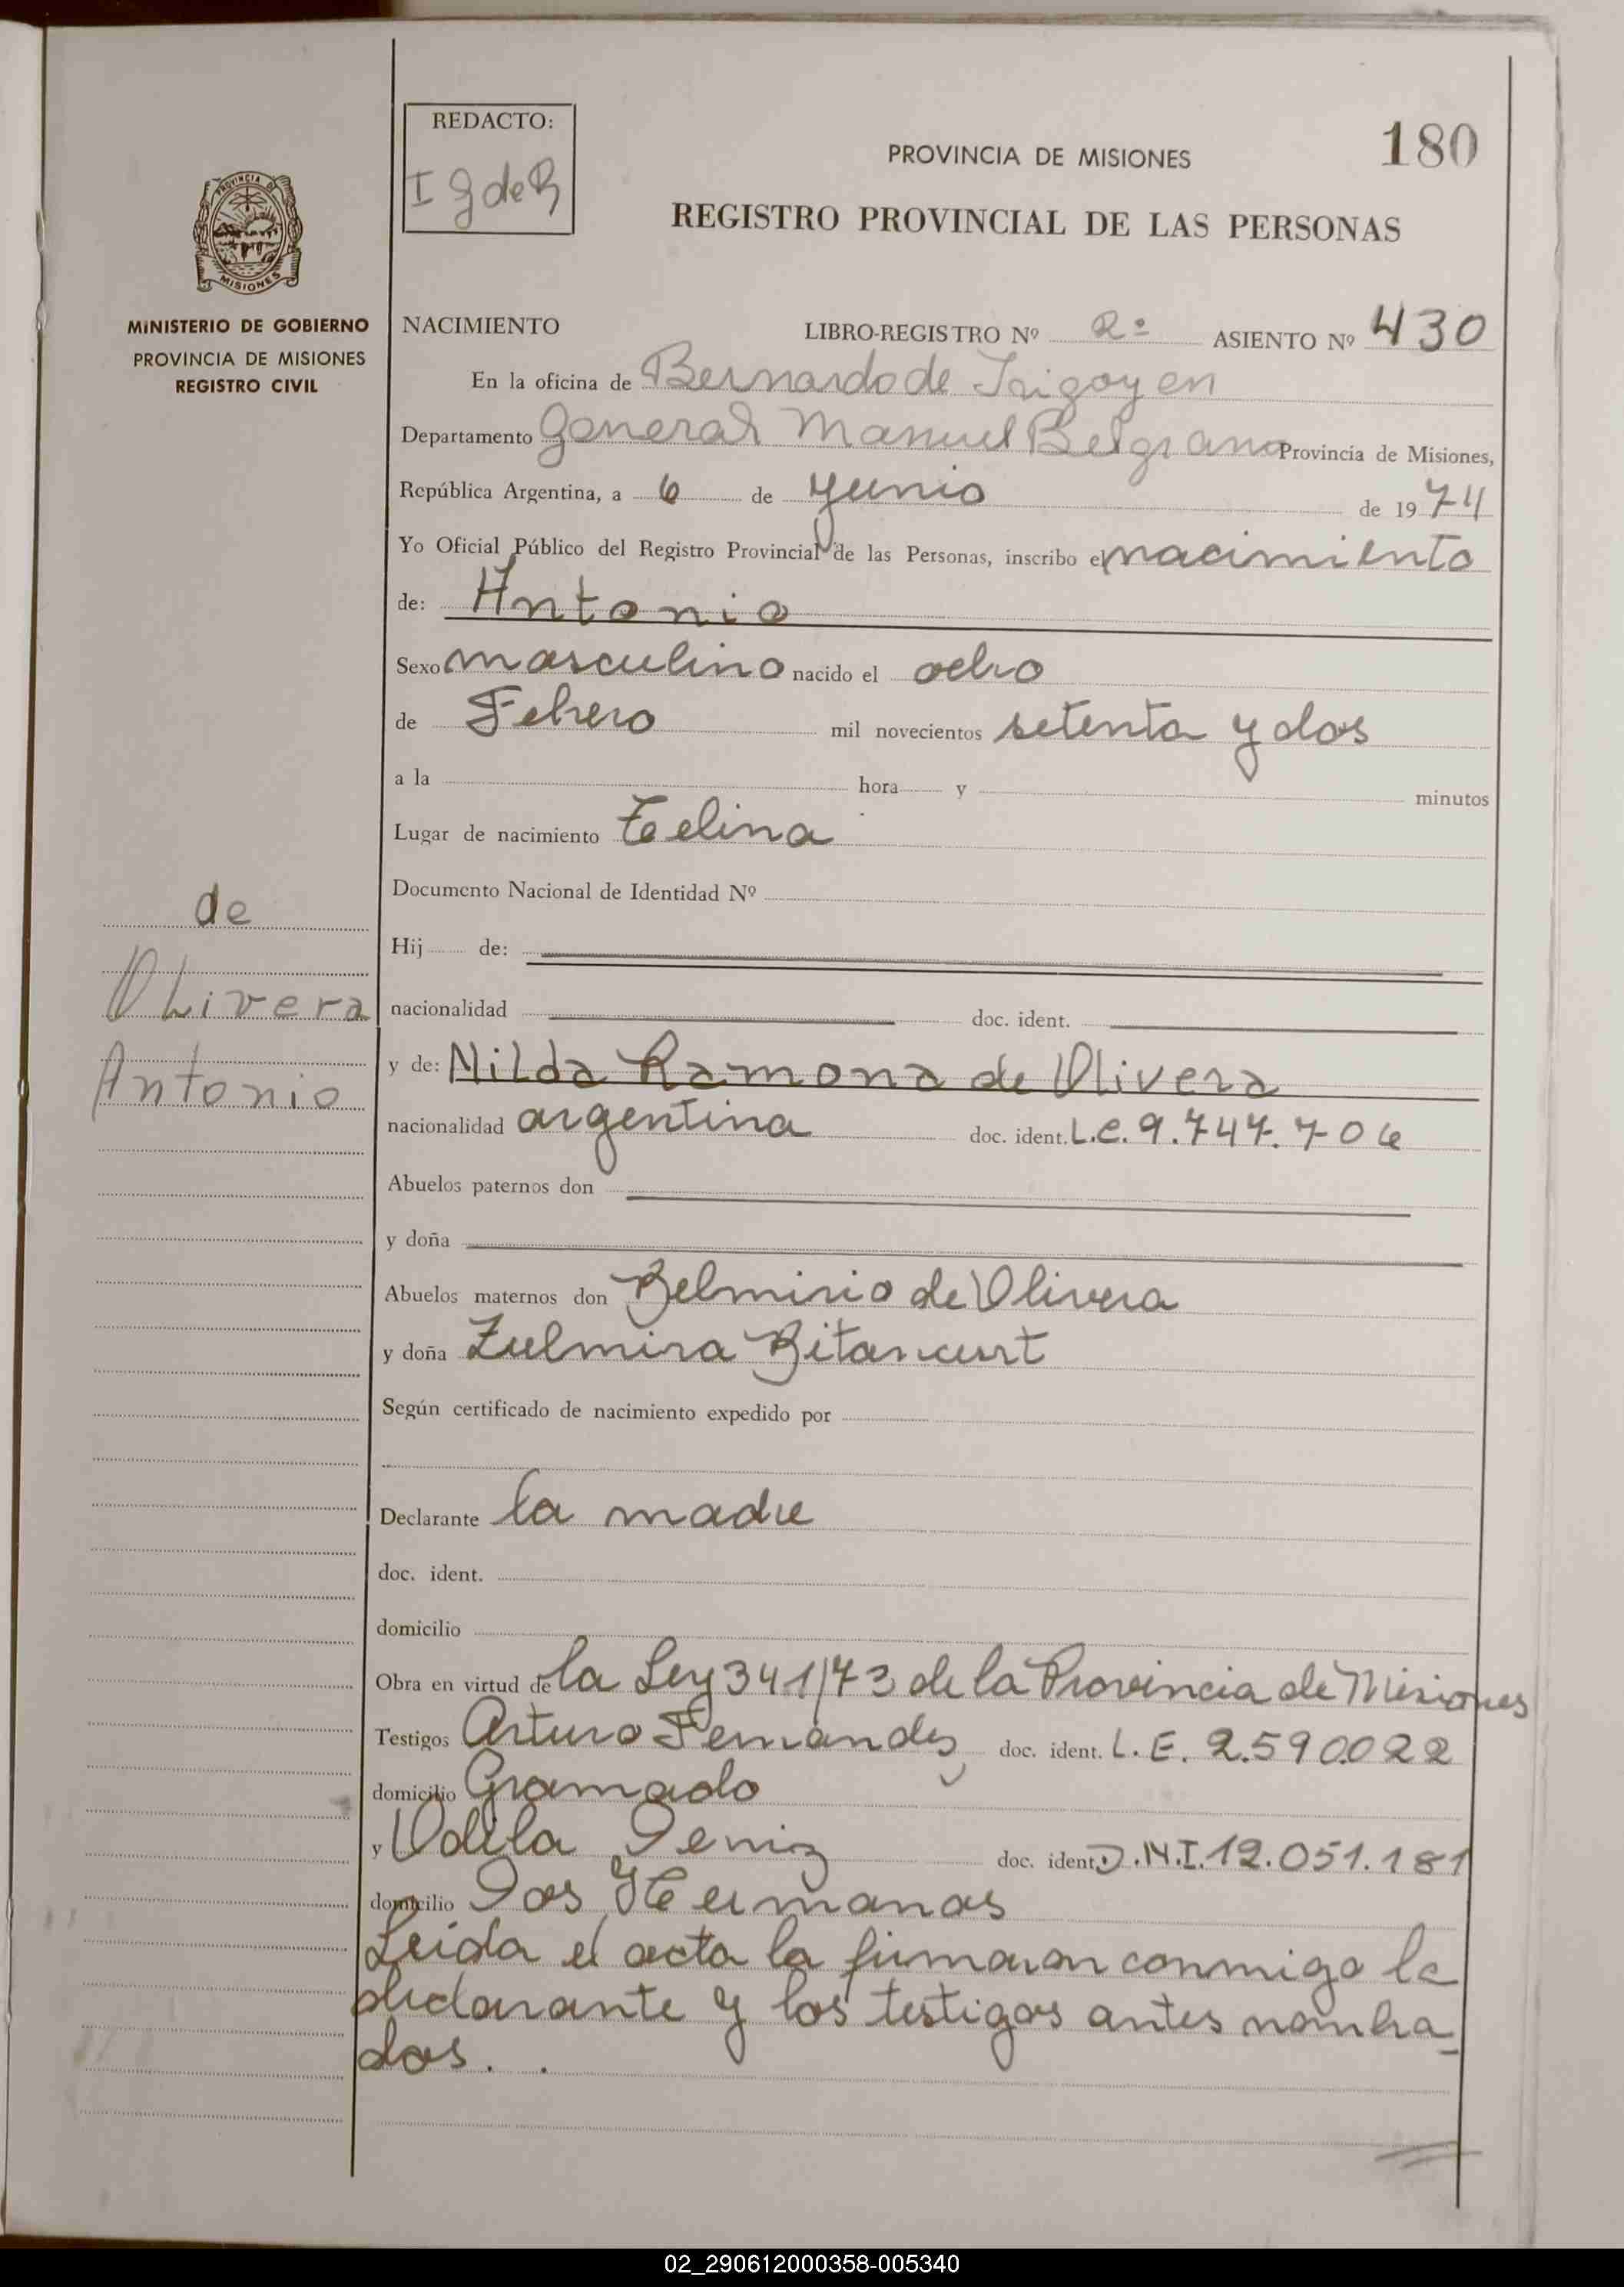 REDACTO:
I G de B
PROVINCIA DE MISIONES
180
REGISTRO PROVINCIAL DE LAS PERSONAS
PROVINCIA DE
MISIONES
MINISTERIO DE GOBIERNO
PROVINCIA DE MISIONES
REGISTRO CIVIL
NACIMIENTO LIBRO-REGISTRO Nº 2º ASIENTO Nº 430
En la oficina de Bernardo de Irigoyen
Departamento General Manuel Belgrano Provincia de Misiones,
República Argentina, a 6 de Junio de 1974
Yo Oficial Público del Registro Provincial de las Personas, inscribo el nacimiento
de: Antonio
Sexo masculino nacido el ocho
de Febrero mil novecientos setenta y dos
a la hora y minutos
Lugar de nacimiento
Documento Nacional de Identidad Nº
Hij de:
nacionalidad doc. ident.
y de: Nilda Ramona de Olivera
nacionalidad argentina doc. ident. L.C. 9.747.706
Abuelos paternos don
y doña
Abuelos maternos don Belmirio de Olivera
y doña Zulmira Bitancurt
Según certificado de nacimiento expedido por
Declarante la madre
doc. ident.
domicilio
Obra en virtud de la Ley 341/73 de la Provincia de Misiones
Testigos Arturo Fernandez doc. ident. L.E. 2.590.022
domicilio Gramado
y Odila Deniz doc. ident. D.N.I. 12.051.181
domicilio Dos Hermanas
Leida el acta la firmaron conmigo la
declarante y los testigos antes nombra
dos. .
de
Olivera
Antonio
02_290612000358-005340